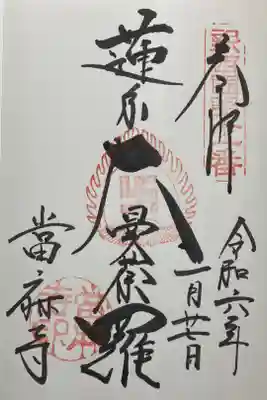 奉拝
令和六年
一月廿七日
蓮糸大曼荼羅
當麻寺